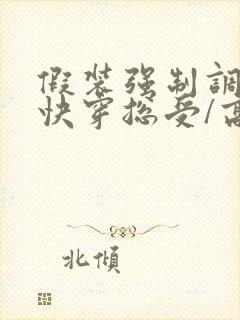 假装强制調
快穿總受/高
北傾